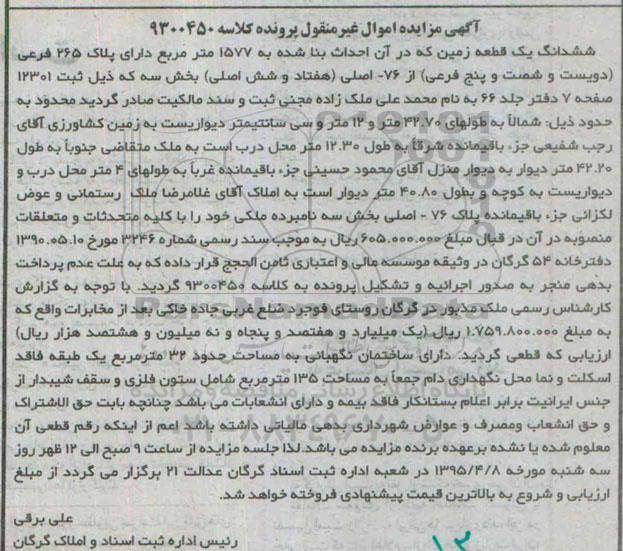 آگهی مزایده اموال غیرمنقول پرونده کلاسه ۹۳۰۰۴۵۰
ششدانگ یک قطعه زمین که در آن احداث بنا شده به ۱۵۷۷ متر مربع دارای پلاک ۲۶۵ فرعی
(دویست و شصت و پنج فرعی) از ۷۶- اصلی (هفتاد و شش اصلی) بخش سه که ذیل ثبت ۱۲۳۰۱
صفحه ۷ دفتر جلد ۶۶ به نام محمد علی ملک زاده مجنی ثبت و سند مالکیت صادر گردید محدود به
حدود ذیل: شمالاً به طولهای ۴۲.۷۰ متر و ۱۲ متر و سی سانتیمتر دیواریست به زمین کشاورزی آقای
رجب شفیعی جزء باقیمانده شرقاً به طول ۱۲.۳۰ متر محل درب است به ملک متقاضی جنوباً به طول
۴۲.۲۰ متر دیوار به دیوار منزل آقای محمود حسینی جزء باقیمانده غرباً به طولهای ۴ متر محل درب و
دیواریست به کوچه و بطول ۴۰.۸۰ متر دیوار است به املاک آقای غلامرضا ملک رستمانی و عوض
لکزائی جزء باقیمانده پلاک ۷۶ - اصلی بخش سه نامبرده ملکی خود را با کلیه متحدثات و متعلقات
منصوبه در آن در قبال مبلغ ۶۰۵.۰۰۰.۰۰۰ ریال به موجب سند رسمی شماره ۳۲۴۶ مورخ ۱۳۹۰.۰۵.۱۰
دفترخانه ۵۴ گرگان در وثیقه موسسه مالی و اعتباری ثامن الحجج قرار داده که به علت عدم پرداخت
بدهی منجر به صدور اجرائیه و تشکیل پرونده به کلاسه ۹۳۰۰۴۵۰ گردید. با توجه به گزارش
کارشناس رسمی ملک مذبور در گرگان روستای فوجرد ضلع غربی جاده خاکی بعد از مخابرات واقع که
به مبلغ ۱.۷۵۹.۸۰۰.۰۰۰ ریال (یک میلیارد و هفتصد و پنجاه و نه میلیون و هشتصد هزار ریال)
ارزیابی که قطعی گردید. دارای ساختمان نگهبانی به مساحت حدود ۳۲ مترمربع یک طبقه فاقد
اسکلت و نما محل نگهداری دام جمعاً به مساحت ۱۳۵ مترمربع شامل ستون فلزی و سقف شیبدار از
جنس ایرانیت برابر اعلام بستانکار فاقد بیمه و دارای انشعابات می باشد چنانچه بابت حق الاشتراک
و حق انشعاب ومصرف و عوارض شهرداری بدهی مالیاتی داشته باشد اعم از اینکه رقم قطعی آن
معلوم شده یا نشده برعهده برنده مزایده می باشد.لذا جلسه مزایده از ساعت ۹ صبح الی ۱۲ ظهر روز
سه شنبه مورخه ۱۳۹۵/۴/۸ در شعبه اداره ثبت اسناد گرگان عدالت ۲۱ برگزار می گردد از مبلغ
ارزیابی و شروع به بالاترین قیمت پیشنهادی فروخته خواهد شد.
علی برقی
رئیس اداره ثبت اسناد و املاک گرگان
۱۳